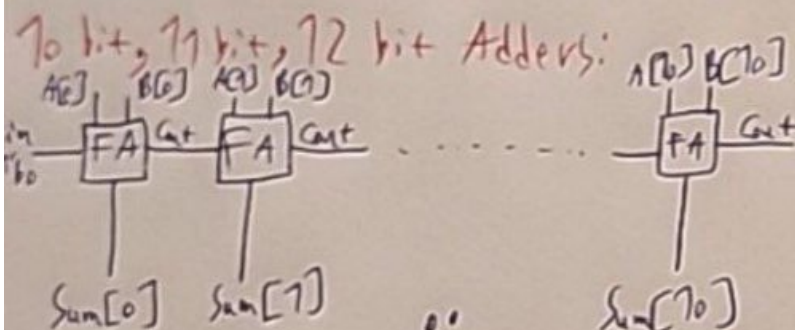 10 bit, 11 bit, 12 bit Adders:
A[0] B[0] A[1] B[1] A[10] B[10]
in FA Cout FA Cout FA Cout
Sum[0] Sum[1] Sum[10]